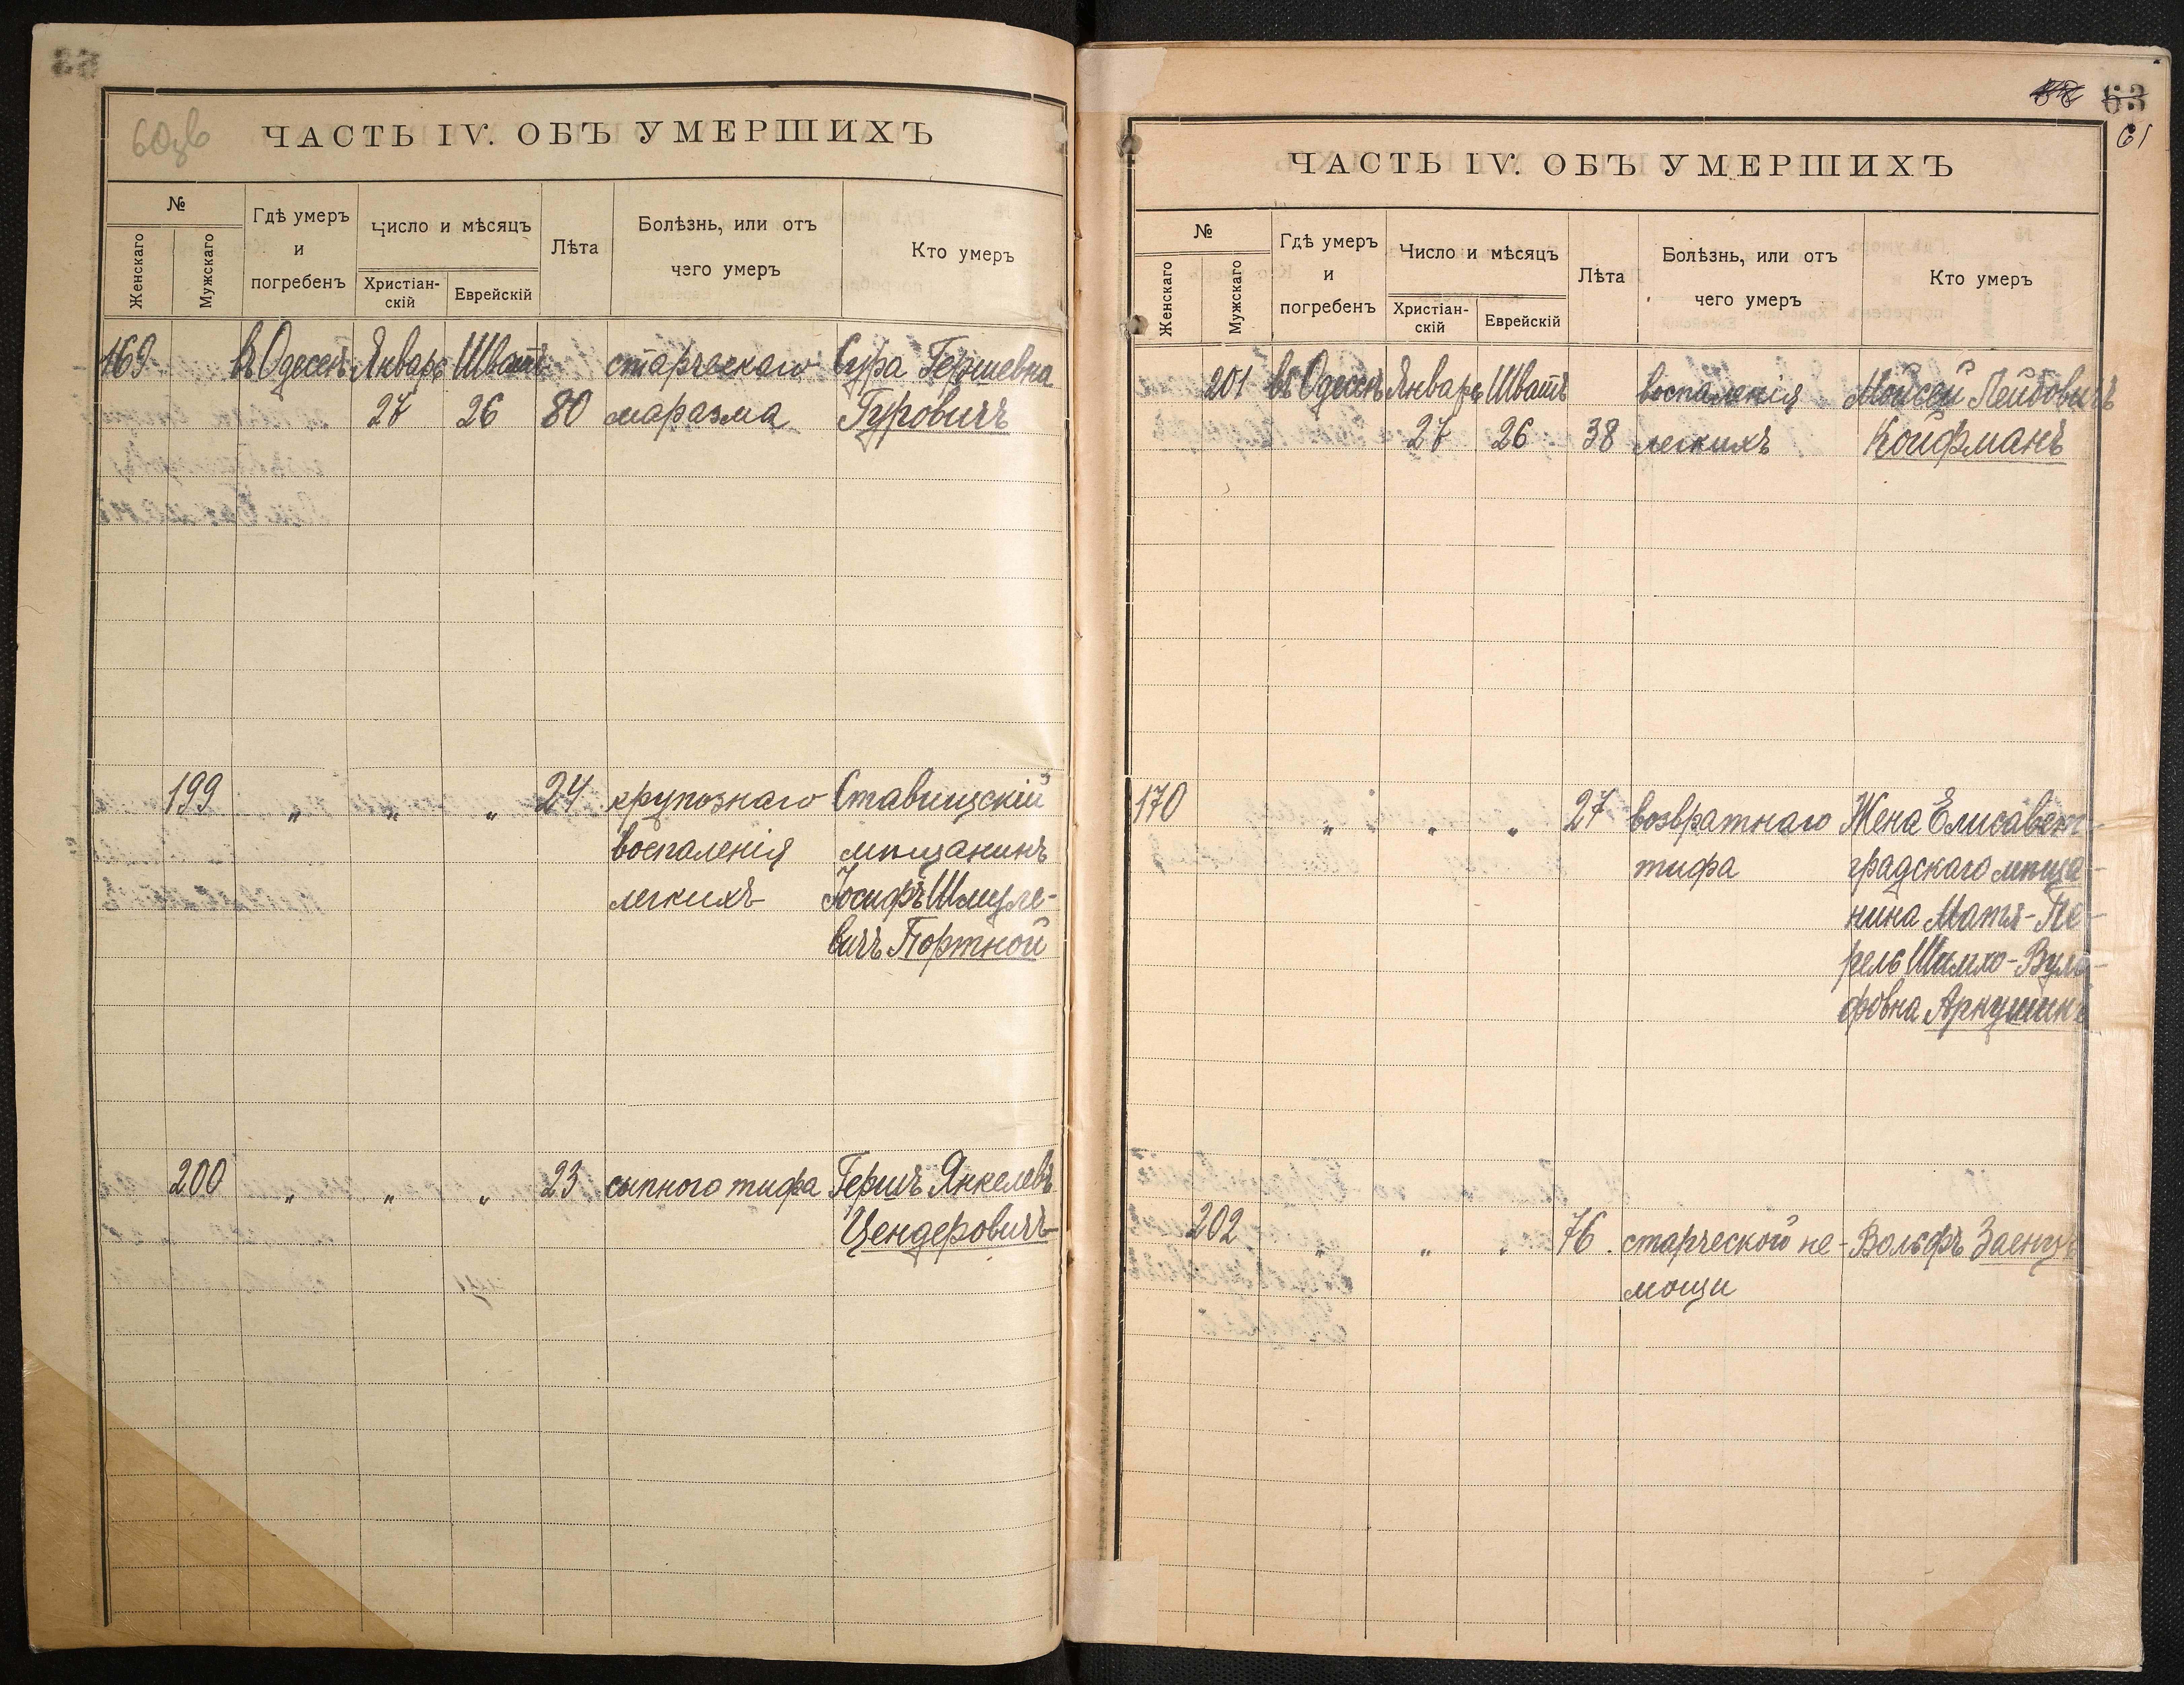 60зв
ЧАСТЬ IV. ОБЪ УМЕРШИХЪ
№
Женскаго
Мужскаго
Гдѣ умеръ
и
погребенъ
Число и мѣсяцъ
Христіан-
скій
Еврейскій
Лѣта
Болѣзнь, или отъ
чего умеръ
Кто умеръ
169 въ Одессѣ Январь Шватъ старческаго Сура Гершевна
27 26 80 маразма Гуровичъ
199 " " " 24 крупознаго Ставищскій
воспаленія мѣщанинъ
легкихъ Іосифъ Шмуле-
вичъ Портной
200 " " " 23 сыпного тифа Гершъ Янкелевъ
Цендеровичъ
63
61
ЧАСТЬ IV. ОБЪ УМЕРШИХЪ
№
Женскаго
Мужскаго
Гдѣ умеръ
и
погребенъ
Число и мѣсяцъ
Христіан-
скій
Еврейскій
Лѣта
Болѣзнь, или отъ
чего умеръ
Кто умеръ
201 въ Одессѣ Январь Шватъ воспаленія Мойсей Лейбовичъ
27 26 38 легкихъ Койфманъ
170 " " " 27 возвратнаго Жена Елисавет-
тифа градскаго мѣща-
нина Матя-Пе-
рель Шимхо-Вуль-
фовна Аркушинъ
202 " " " 76 старческой не- Вольфъ Заенцъ
мощи